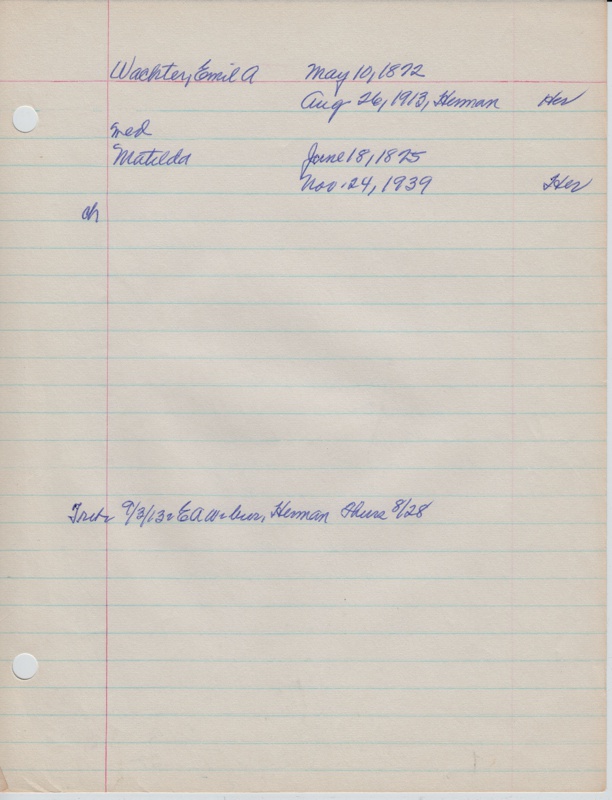 Wachter, Emil A May 10, 1872
Aug 26, 1913, Herman Her
med
Matilda June 18, 1875
Nov. 24, 1939 Her
ch
9/3/13: EAW-bur, Herman thurs 8/28